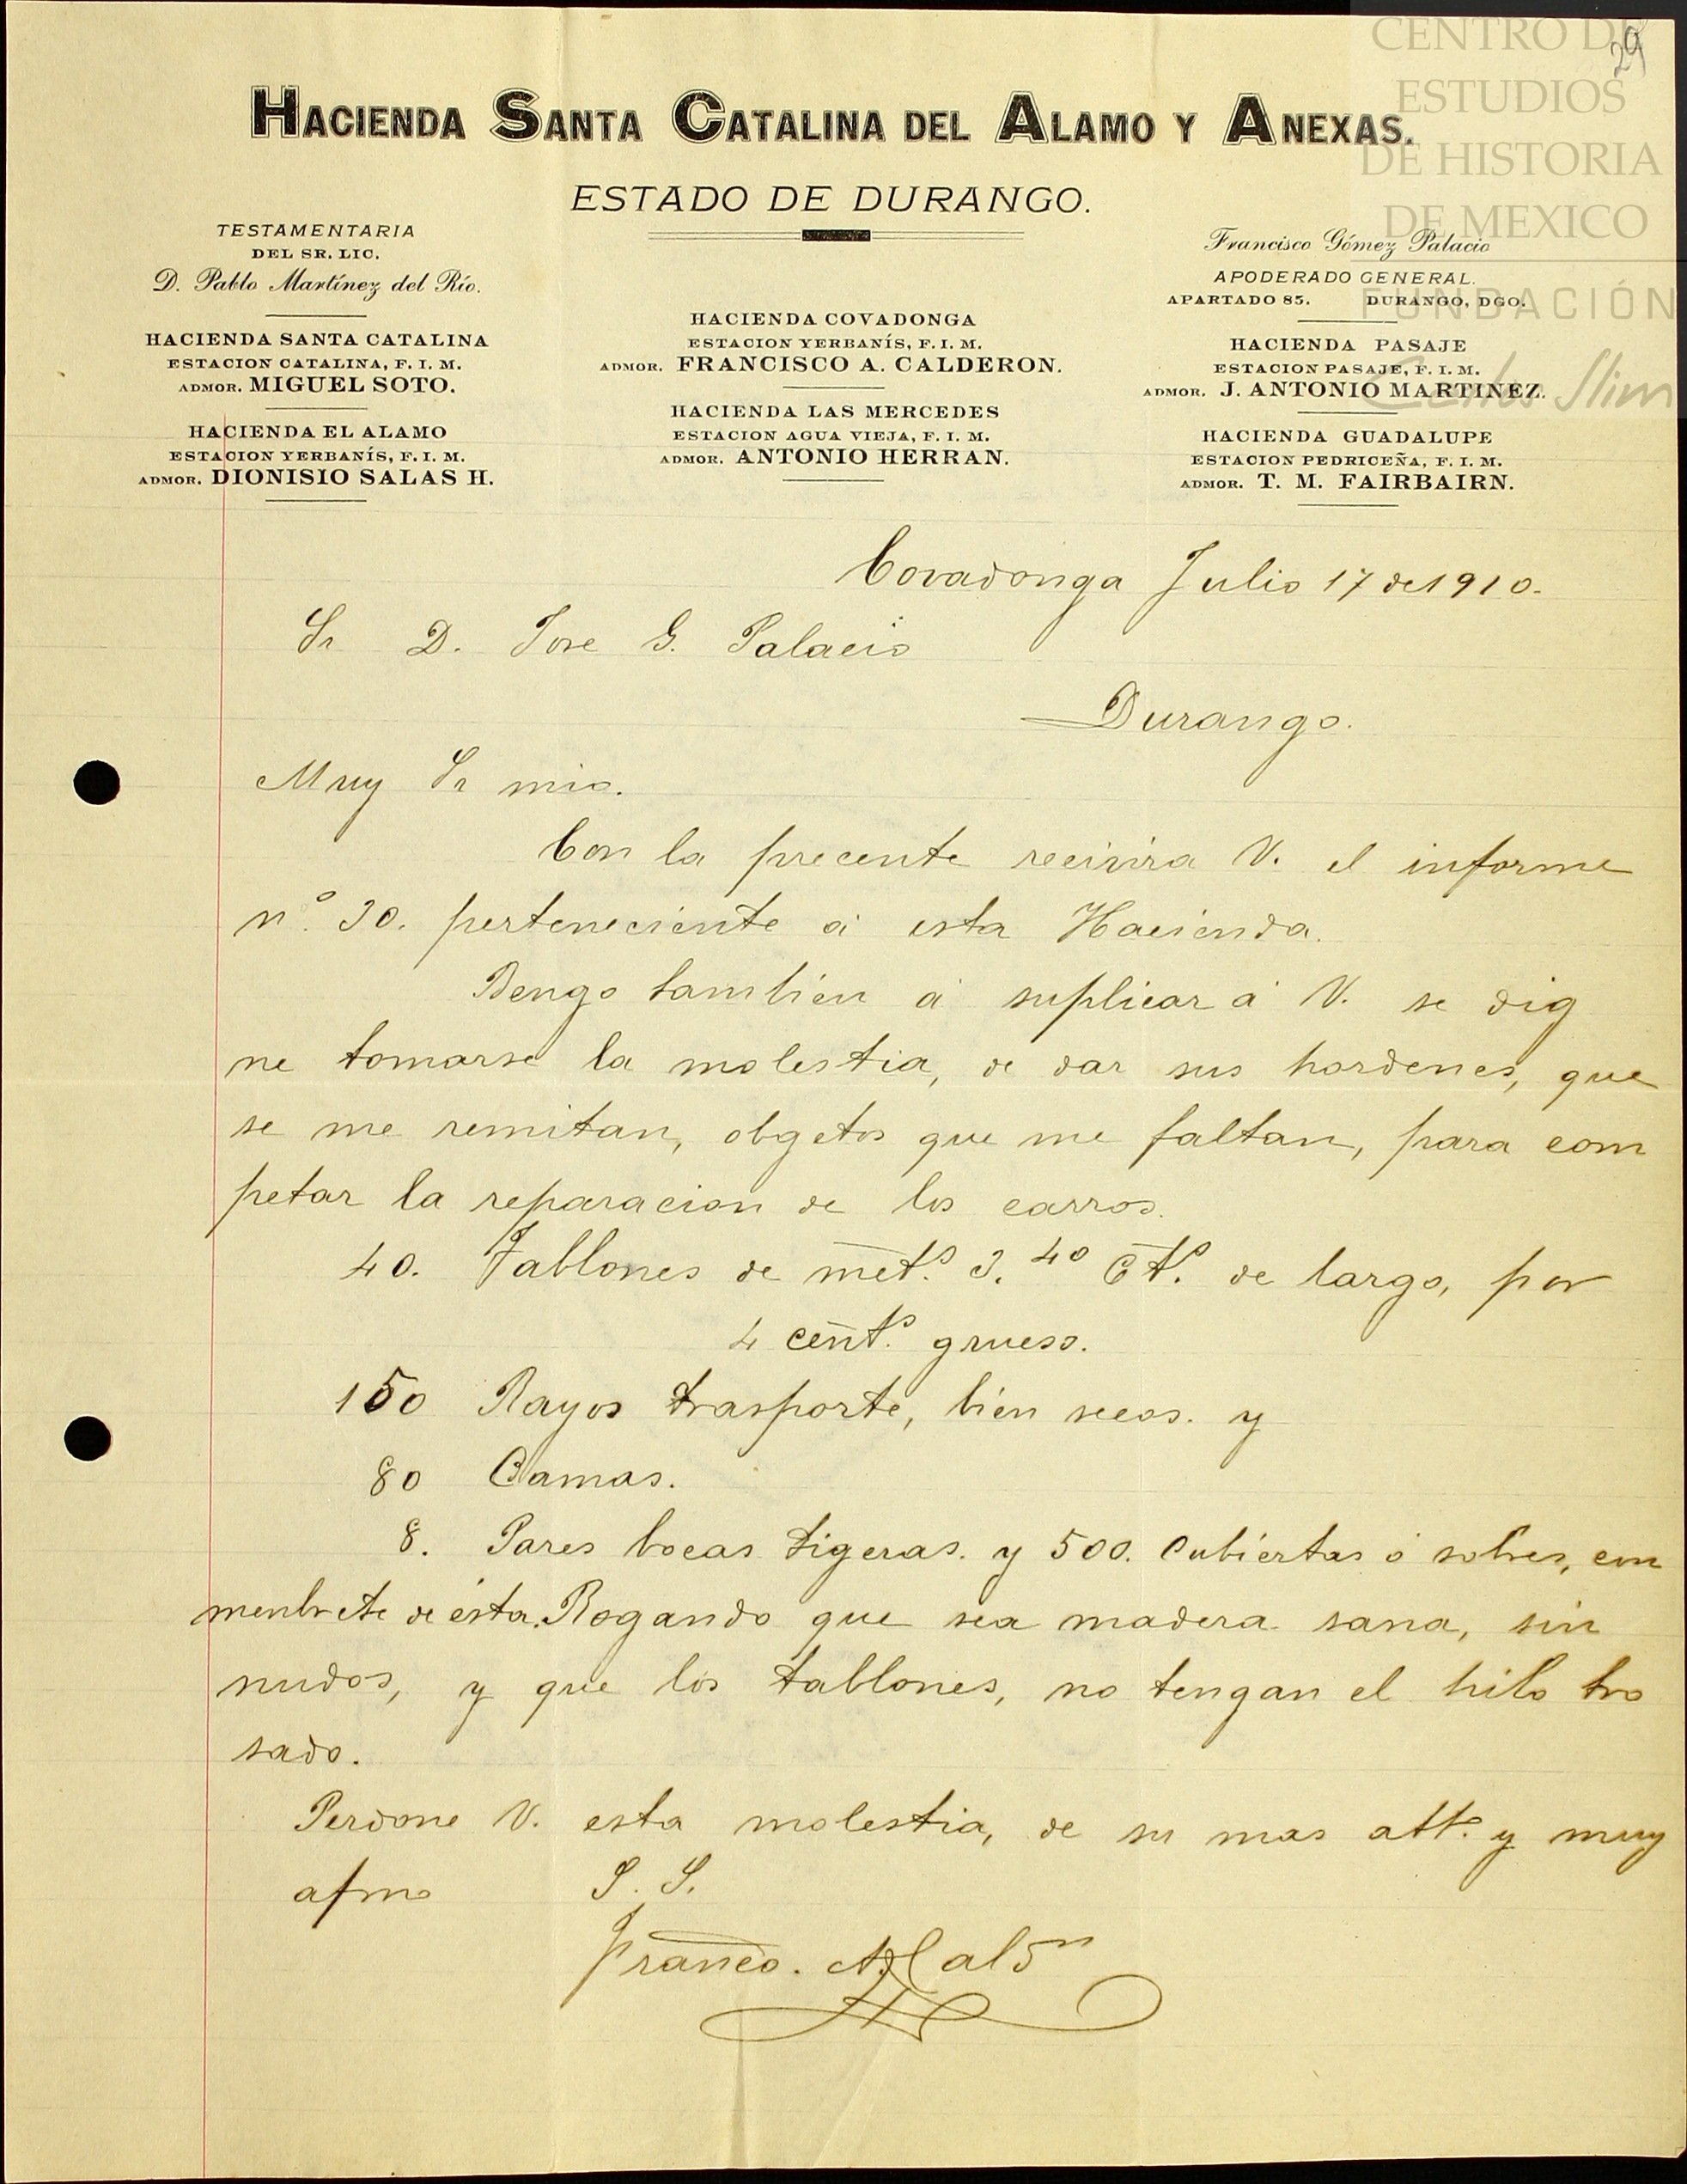 29
CENTRO DE
ESTUDIOS
DE HISTORIA
DE MEXICO
FUNDACIÓN
Carlos Slim
HACIENDA SANTA CATALINA DEL ALAMO Y ANEXAS.
ESTADO DE DURANGO.
TESTAMENTARIA
DEL SR. LIC.
D. Pablo Martínez del Río.
HACIENDA SANTA CATALINA
ESTACION CATALINA, F. I. M.
ADMOR. MIGUEL SOTO.
HACIENDA EL ALAMO
ESTACION YERBANÍS, F. I. M.
ADMOR. DIONISIO SALAS H.
HACIENDA COVADONGA
ESTACION YERBANÍS, F. I. M.
ADMOR. FRANCISCO A. CALDERON.
HACIENDA LAS MERCEDES
ESTACION AGUA VIEJA, F. I. M.
ADMOR. ANTONIO HERRAN.
Francisco Gómez Palacio
APODERADO GENERAL.
APARTADO 85. DURANGO, DGO.
HACIENDA PASAJE
ESTACION PASAJE, F. I. M.
ADMOR. J. ANTONIO MARTINEZ.
HACIENDA GUADALUPE
ESTACION PEDRICEÑA, F. I. M.
ADMOR. T. M. FAIRBAIRN.
Covadonga Julio 17 de 1910.
Sr D. Jose G. Palacio
Durango.
Muy Sr mio.
Con la precente recivira V. el informe
nº. 30. perteneciente á esta Hacienda.
Bengo tambien á suplicar á V. se dig
ne tomarse la molestia, de dar sus hordenes, que
se me remitan, obgetos que me faltan, para com
petar la reparacion de los carros.
40. Tablones de metˢ. 3.40 Ctˢ. de largo, por
4 centˢ. grueso.
150 Rayos trasporte, bien secos. y
80 Camas.
8. Pares bocas tigeras. y 500. cubiertas ó sobres, con
menbrete de ésta. Rogando que sea madera sana, sin
nudos, y que los tablones, no tengan el hilo tro
sado.
Perdone V. esta molestia, de su mas attº. y muy
afmo S. S.
Franco. A. Calᵒⁿ